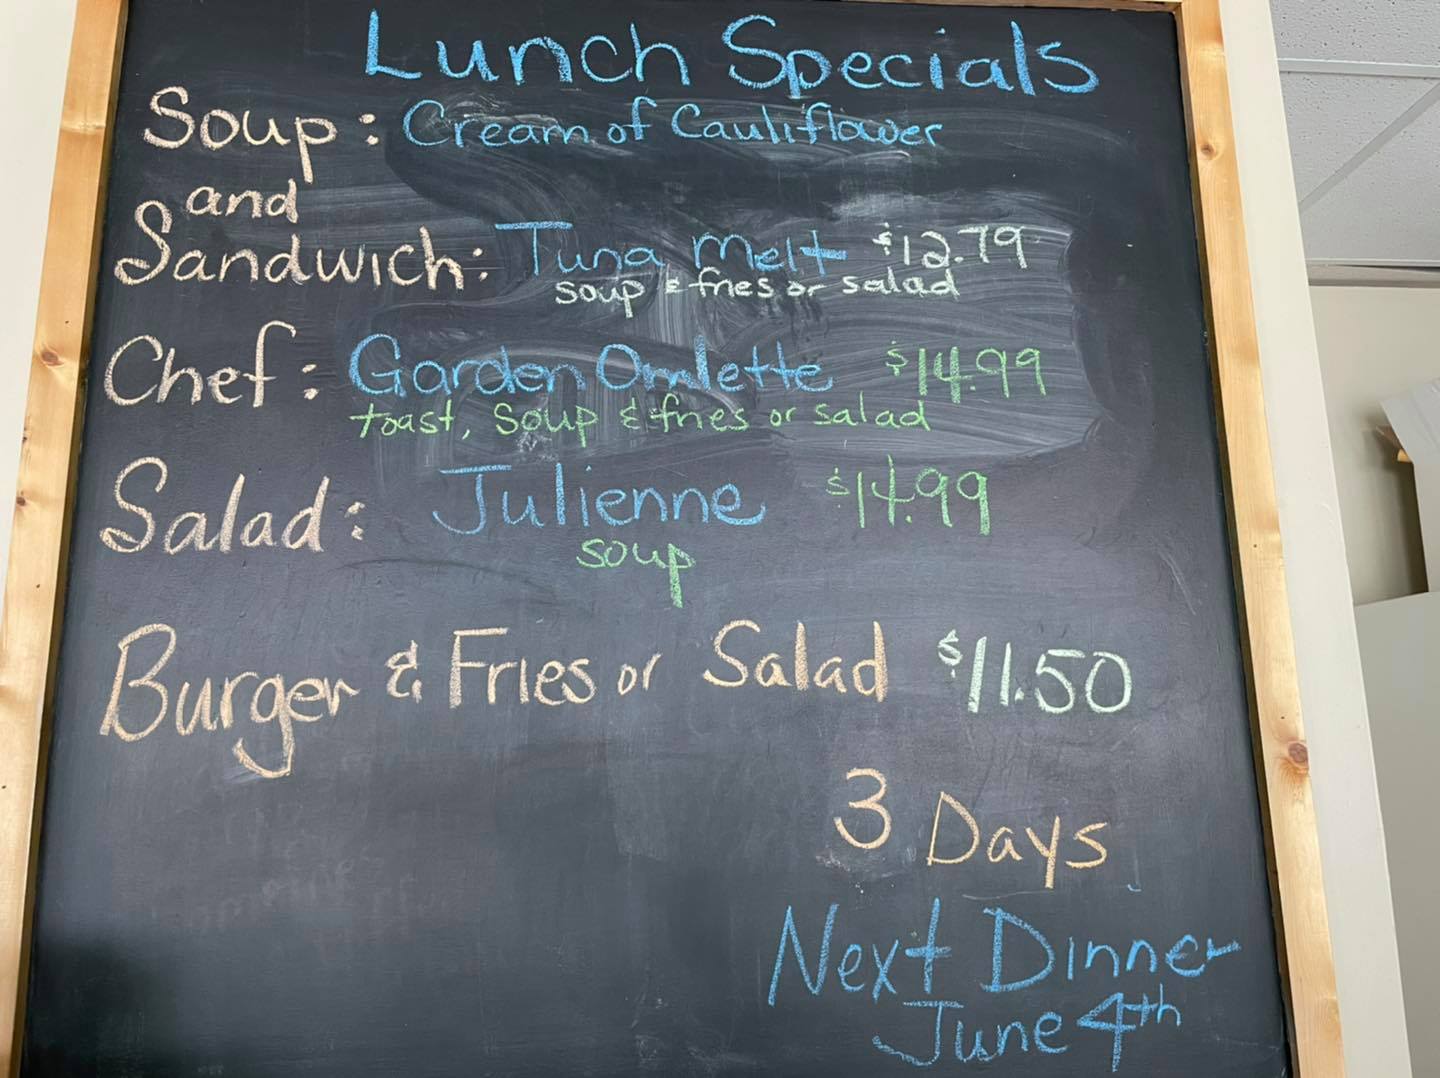 Lunch Specials
Soup: Cream of Cauliflower
and
Sandwich: Tuna Melt $12.79
soup & fries or salad
Chef: Garden Omlette $14.99
toast, soup & fries or salad
Salad: Julienne $14.99
soup
Burger & Fries or Salad $11.50
3 Days
Next Dinner
June 4th